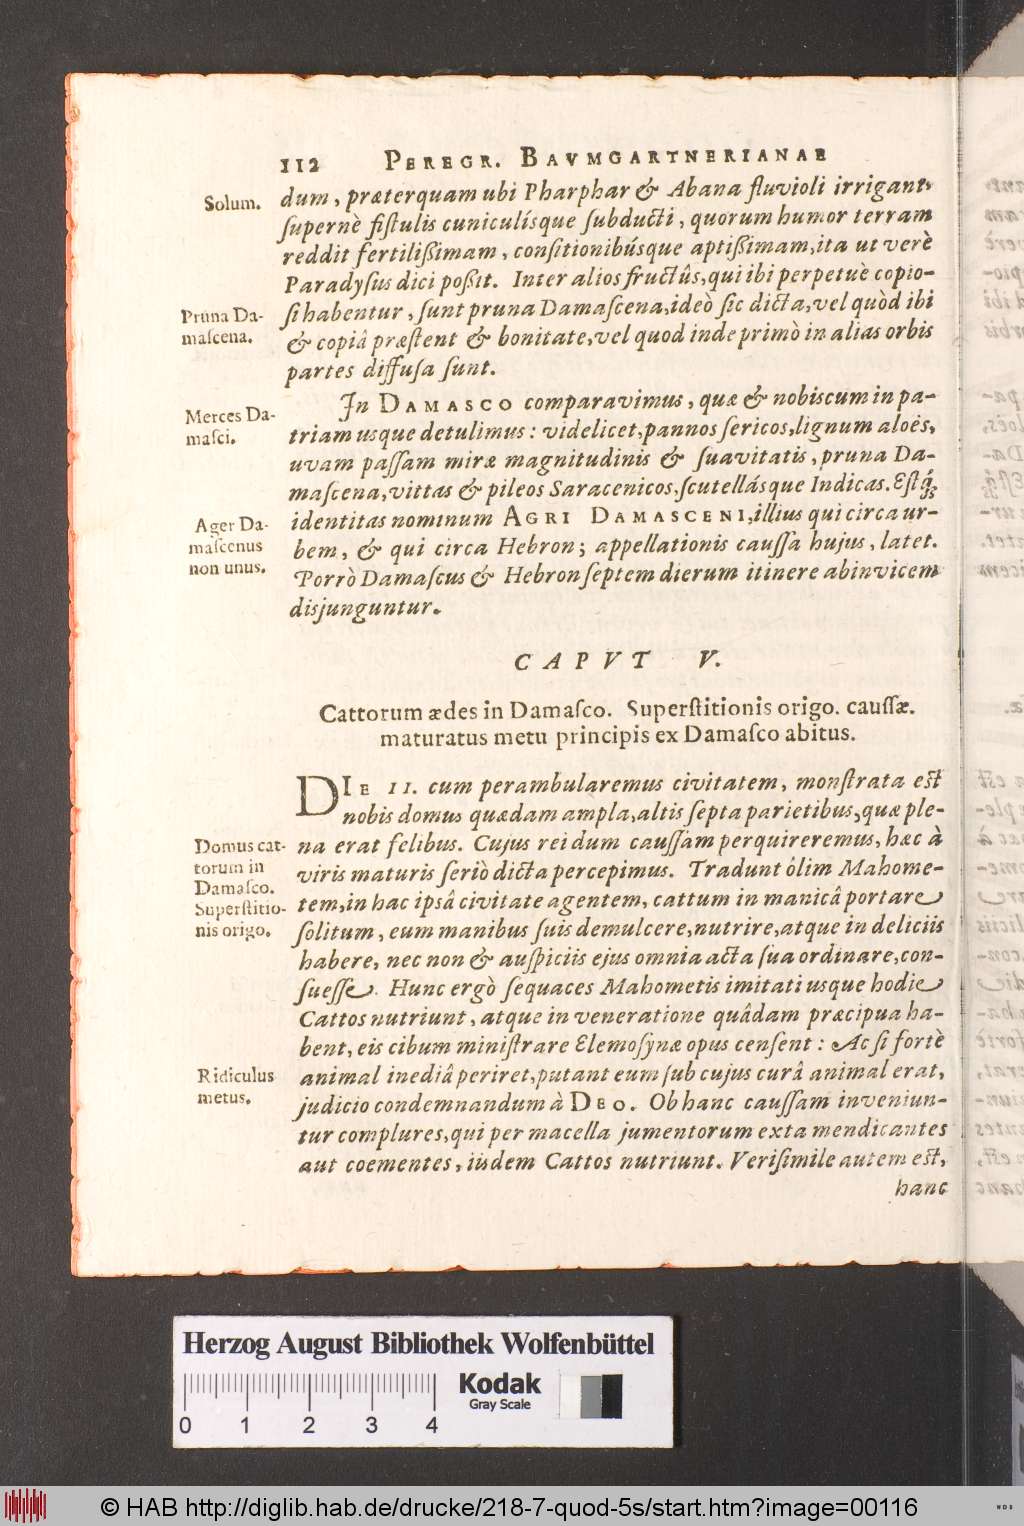 112 PEREGR. BAVMGARTNERIANAE
Solum.
dum, præterquam ubi Pharphar & Abana fluvioli irrigant,
ſupernè fiſtulis cuniculísque ſubducti, quorum humor terram
reddit fertilißimam, conſitionibúsque aptißimam, ita ut verè
Paradyſus dici poßit. Inter alios fructûs, qui ibi perpetuè copio-
Pruna Da-
maſcena.
ſi habentur, ſunt pruna Damaſcena, ideò ſic dicta, vel quòd ibi
& copiâ præſtent & bonitate, vel quod inde primò in alias orbis
partes diffuſa ſunt.
Merces Da-
maſci.
In DAMASCO comparavimus, quæ & nobiscum in pa-
triam usque detulimus: videlicet, pannos ſericos, lignum aloës,
uvam paſſam miræ magnitudinis & ſuavitatis, pruna Da-
maſcena, vittas & pileos Saracenicos, ſcutellásque Indicas. Eſtq́;
Ager Da-
maſcenus
non unus.
identitas nominum AGRI DAMASCENI, illius qui circa ur-
bem, & qui circa Hebron; appellationis cauſſa hujus, latet.
Porrò Damaſcus & Hebron ſeptem dierum itinere ab invicem
disjunguntur.
CAPVT V.
Cattorum ædes in Damaſco. Superſtitionis origo. cauſſæ.
maturatus metu principis ex Damaſco abitus.
DIE 11. cum perambularemus civitatem, monſtrata eſt
nobis domus quædam ampla, altis ſepta parietibus, quæ ple-
Domus cat-
torum in
Damaſco.
Superſtitio-
nis origo.
na erat felibus. Cujus rei dum cauſſam perquireremus, hæc à
viris maturis ſeriò dicta percepimus. Tradunt ôlim Mahome-
tem, in hac ipsâ civitate agentem, cattum in manicâ portare
ſolitum, eum manibus ſuis demulcere, nutrire, atque in deliciis
habere, nec non & auſpiciis ejus omnia acta ſua ordinare, con-
ſueſſe. Hunc ergò ſequaces Mahometis imitati usque hodie
Cattos nutriunt, atque in veneratione quâdam præcipua ha-
bent, eis cibum miniſtrare Elemoſynæ opus cenſent: Ac ſi fortè
Ridiculus
metus.
animal inediâ periret, putant eum ſub cujus curâ animal erat,
judicio condemnandum à DEO. Ob hanc cauſſam inveniun-
tur complures, qui per macella jumentorum exta mendicantes
aut coementes, iisdem Cattos nutriunt. Veriſimile autem eſt,
hanc
Herzog August Bibliothek Wolfenbüttel
0 1 2 3 4
Kodak
Gray Scale
© HAB http://diglib.hab.de/drucke/218-7-quod-5s/start.htm?image=00116